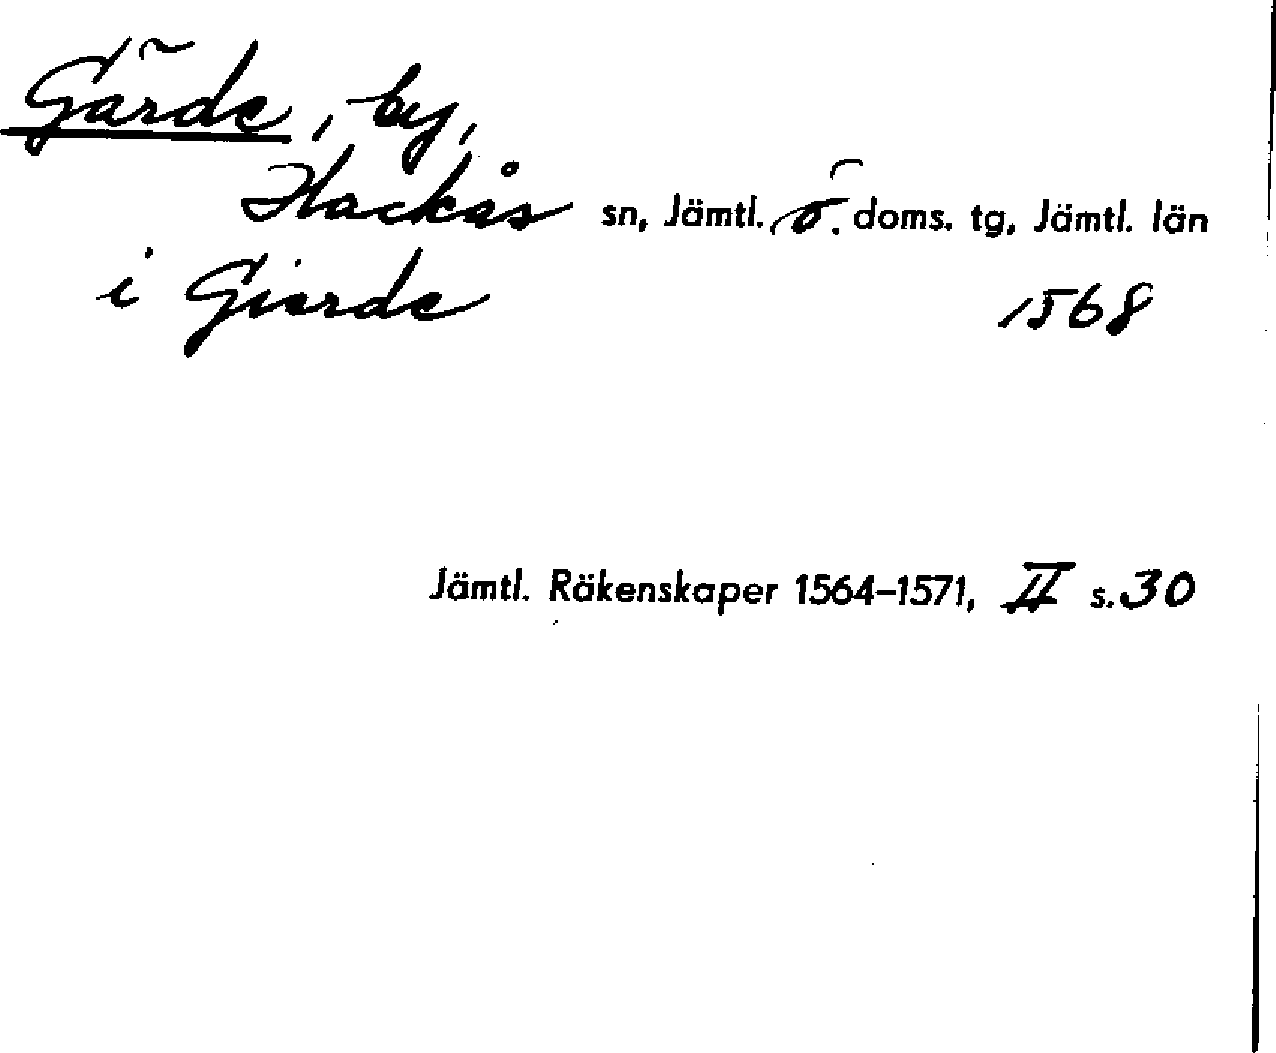 Gärde, by,
Hackås sn, Jämtl. ö. doms. tg, Jämtl. län
i Gierde 1568
Jämtl. Räkenskaper 1564-1571, II s. 30